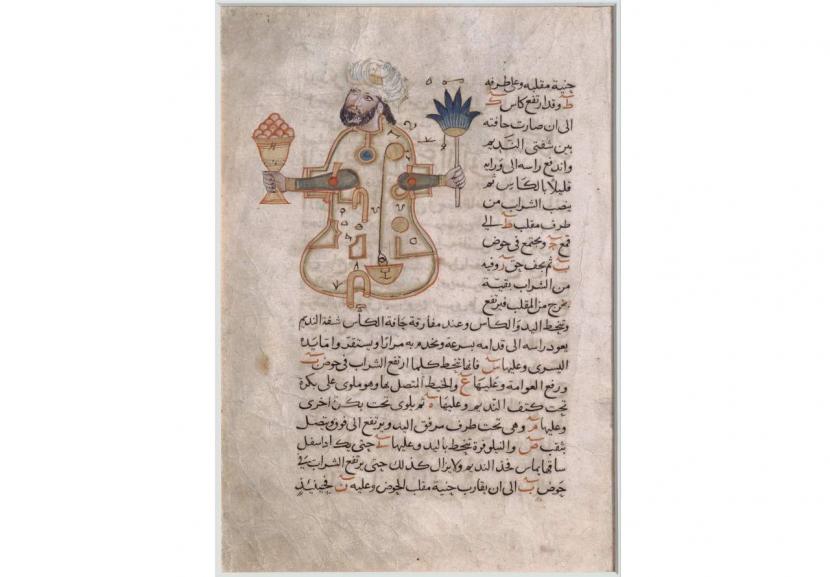 جنبة مقلبه وعلى طرفه
ط وقد ارتفع كاس ك
الى ان صارت حافته
بين شفتي النديم
واندفع راسه الى ورايه
قليلا بالكاس ثم
ينصب الشراب من
طرف مقلب ط الى
قمع ويجتمع في حوض
ثم يجف حق وفيه
من الشراب بقية
يخرج من المقلب فيرتفع
وتنحط اليد والكاس وعند مفارقة حافة الكاس شفة النديم
يعود راسه الى قدامه بسرعة ويخدم به مرارا ويستقر واما يده
اليسرى وعليها س فانها تنحط كلما ارتفع الشراب في حوض ب
ورفع العوامة وعليها ع والخيط المتصل بها وهو ملوى على بكرة
تحت كتف النديم وعليها ه ثم يلوى تحت بكرة اخرى
وعليها م وهي تحت طرف مرفق اليد ويرتفع الى فوق ويتصل
بثقب ص والنيلوفرة تنحط باليد وعليها حتى يكاد اسفل
ساقها يماس فخذ النديم ولا يزال كذلك حتى يرتفع الشراب في
حوض ب الى ان يقارب جنبة مقلب الحوض وعليه ن فحينيذ